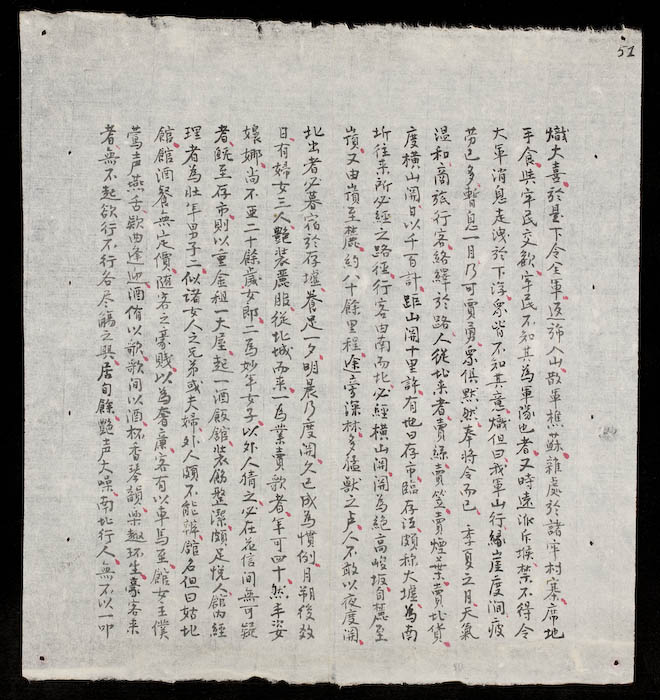 51
熾大喜於是下令全軍返旆入山散草樵蘇雜處於諸牢村寨席地
手食與牢民交歡牢民不知其為軍隊也者又時遠派斥堠禁不得令
大軍消息走洩於下深眾皆不知其意熾但曰我軍山行緣崖度澗疲
勞已多暫息一月乃可賈勇眾俱默然奉將令而已季夏之月天氣
溫和商旅行客絡繹於路人從北來者賣絲賣笠賣煙葉賣北貨
度橫山關日以千百計距山關十里許有地曰存市臨存江頗称大墟為南
北往來所必經之路徑行客由南而北必經橫山關關為絕高峻坂自麓至
嶺又由嶺至麓約八十餘里程途旁深林多猛獸之虞人不敢以夜度關
北出者必暮宿於存墟養足一夕明晨乃度關久已成為慣例月朔後數
日有婦女三人艷裝麗服從北城而來一為業賣歌者年可四十然丰姿
嬝娜尚不亞二十餘歲女郎二為妙年女子以外人猜之必在花信間無可疑
者既至存市則以重金租一大屋起一酒飯館裝飾整潔頗足悅人館內經
理者為壯年男子二似諸女人之兄弟或夫婦外人頗不能辨館名但曰姑地
館館酒餐無定價隨客之豪賤以為奢廉客有以車馬至館女主僕
鶯声燕舌歡曲逢迎酒侑以歌歌間以酒杯香琴韻樂趣环生豪客來
者無不起欲行不行各尽觴之興居旬餘艷声大噪南北行人無不以一叩